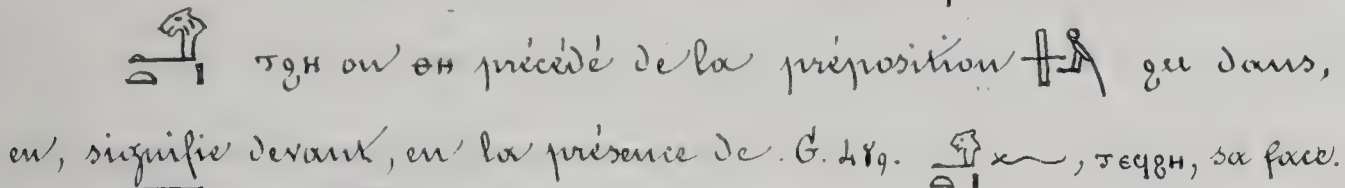 ⲧϩⲏ ou ⲑⲏ précédé de la préposition dans,
en, signifie devant, en la présence de. G. 489. , ⲧⲉϥϩⲏ, sa face.